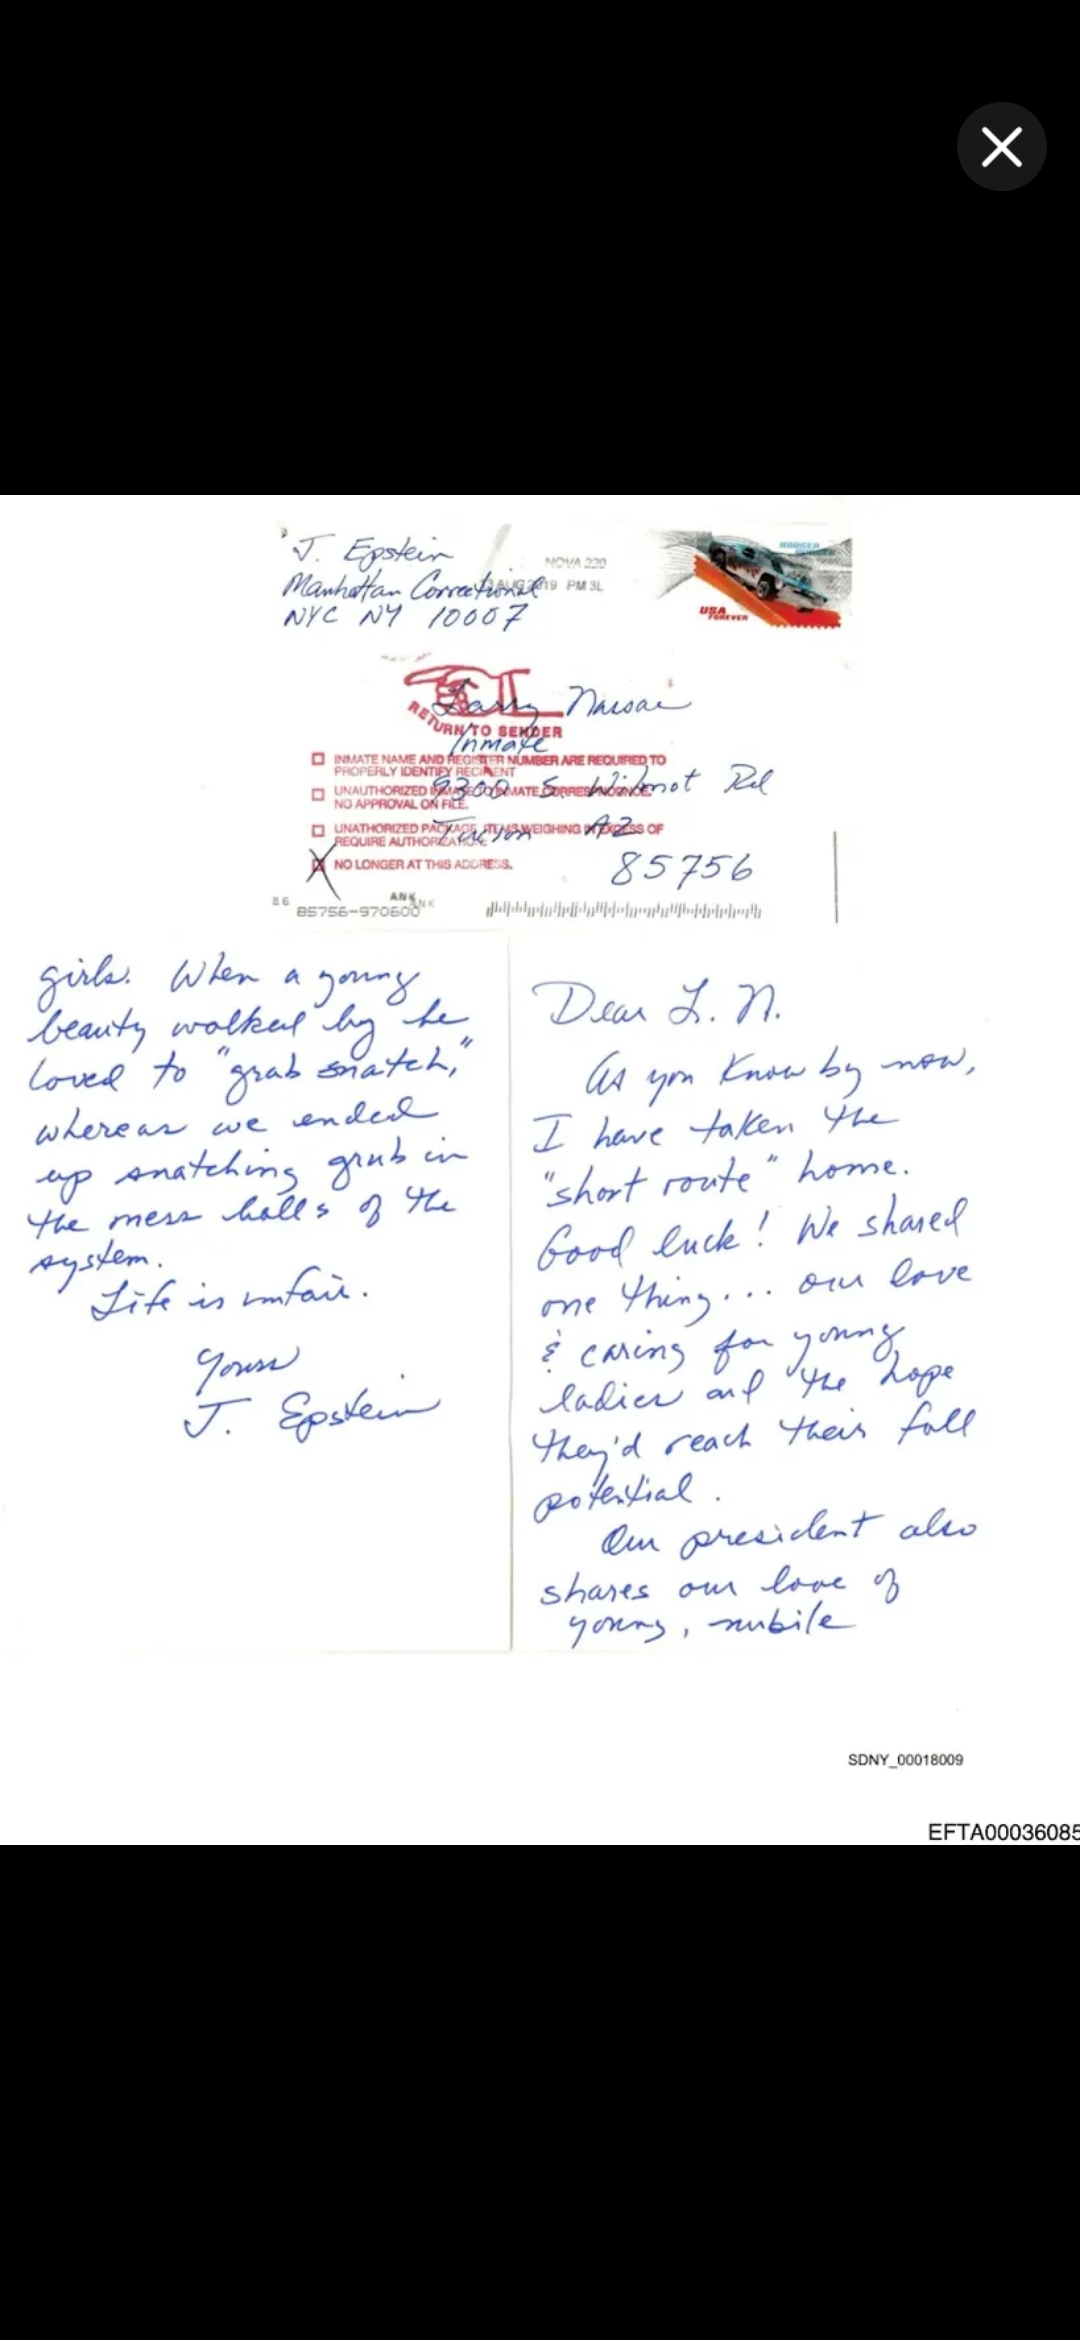 J. Epstein
Manhattan Correctional
NYC NY 10007
NOVA 220
AUG 2019 PM 3L
USA
FOREVER
Larry Nassar
RETURN TO SENDER
Inmate
INMATE NAME AND REGISTER NUMBER ARE REQUIRED TO
PROPERLY IDENTIFY RECIPIENT
9300 S. Wilmot Rd
UNAUTHORIZED INMATE TO INMATE CORRESPONDENCE
NO APPROVAL ON FILE.
Tucson AZ
UNATHORIZED PACKAGE, ITEMS WEIGHING IN EXCESS OF
REQUIRE AUTHORIZATION
NO LONGER AT THIS ADDRESS.
85756
86
ANK
ANK
85756-970600
Dear L. N.
As you know by now,
I have taken the
"short route" home.
Good luck! We shared
one thing... our love
& caring for young
ladies and the hope
they'd reach their full
potential.
Our president also
shares our love of
young, nubile
girls. When a young
beauty walked by he
loved to "grab snatch,"
whereas we ended
up snatching grub in
the mess halls of the
system.
Life is unfair.
Yours
J. Epstein
SDNY_00018009
EFTA00036085